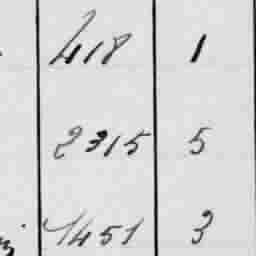 418 1
2315 5
1451 3